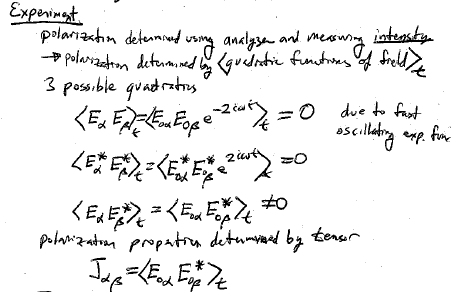 Experiment
polarization determined using analyzer and measuring intensity
→ polarization determined by ⟨quadratic functions of field⟩_t
3 possible quadratics
⟨E_α E_β⟩_t = ⟨E_{0α} E_{0β} e^{-2iωt}⟩_t = 0 due to fast
oscillating exp. func
⟨E_α^* E_β^*⟩_t = ⟨E_{0α}^* E_{0β}^* e^{2iωt}⟩_t = 0
⟨E_α E_β^*⟩_t = ⟨E_{0α} E_{0β}^*⟩_t ≠ 0
polarization properties determined by tensor
J_{αβ} = ⟨E_{0α} E_{0β}^*⟩_t